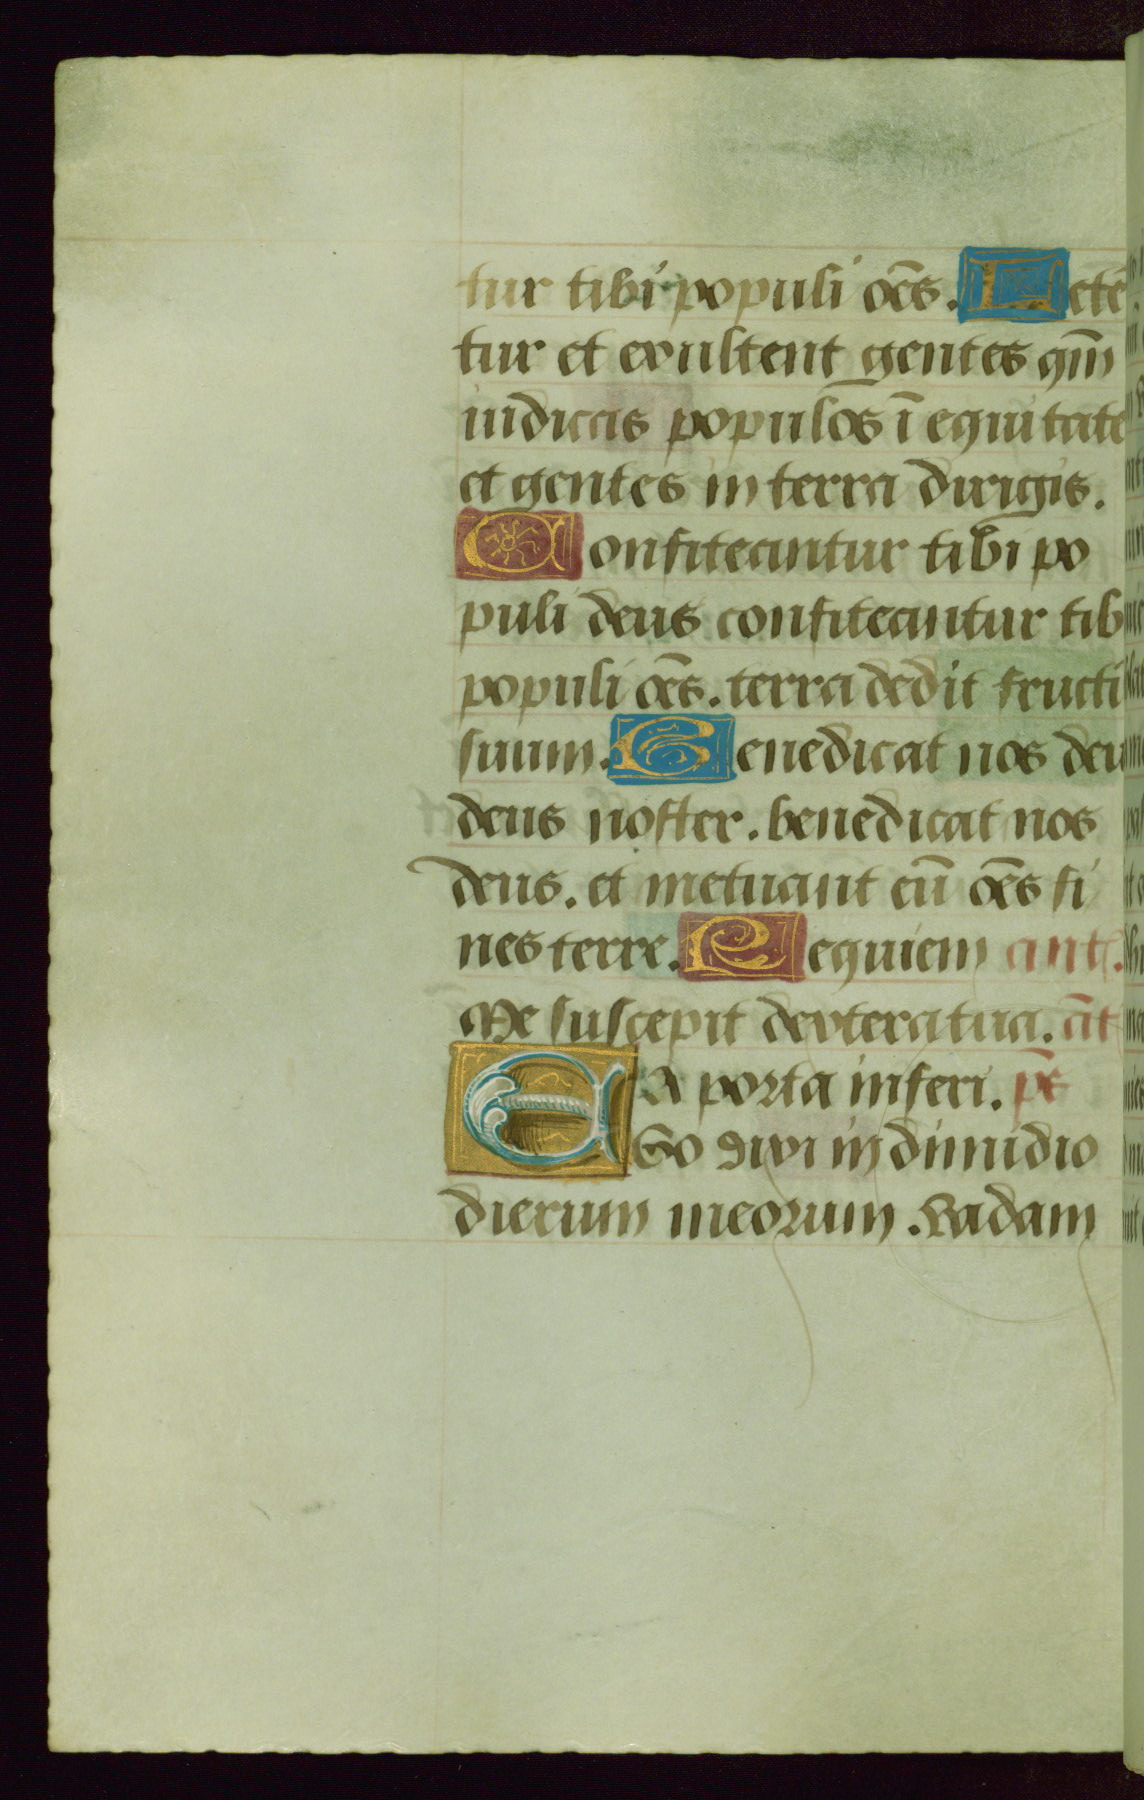 tur tibi populi oēs. Letē
tur et exultent gentes qm̄
iudicas populos ī equitate
et gentes in terra dirigis.
Confiteantur tibi po
puli deus confiteantur tib
populi oēs. terra dedit fructū
suum. Benedicat nos deu
deus noster. benedicat nos
deus. et metuant eū oēs fi
nes terre. Requiem ant.
Me suscepit dextera tua. āt
A porta inferi. ps̄
EGo dixi in dimidio
dierum meorum. Vadam